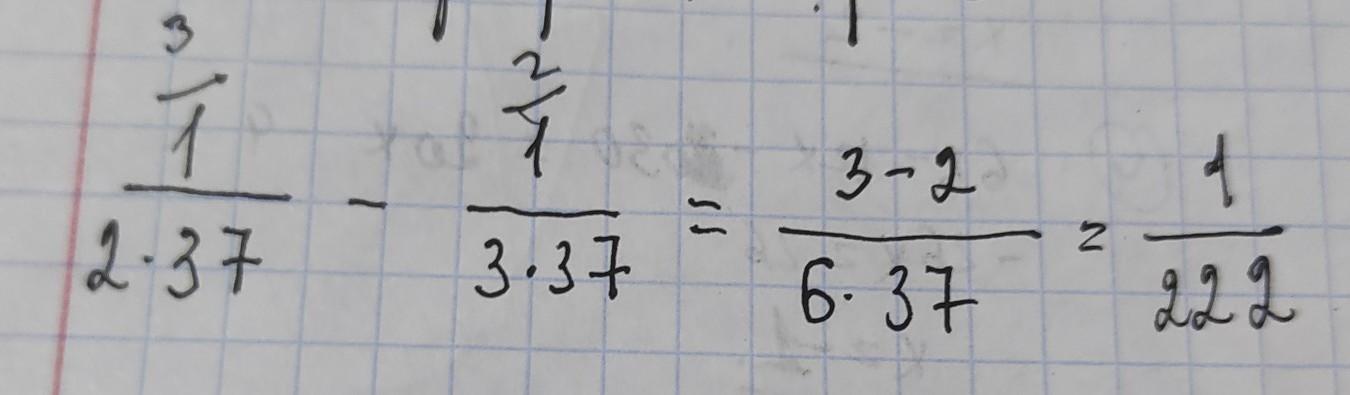 3/ 2/
1/(2·37) - 1/(3·37) = (3-2)/(6·37) = 1/222